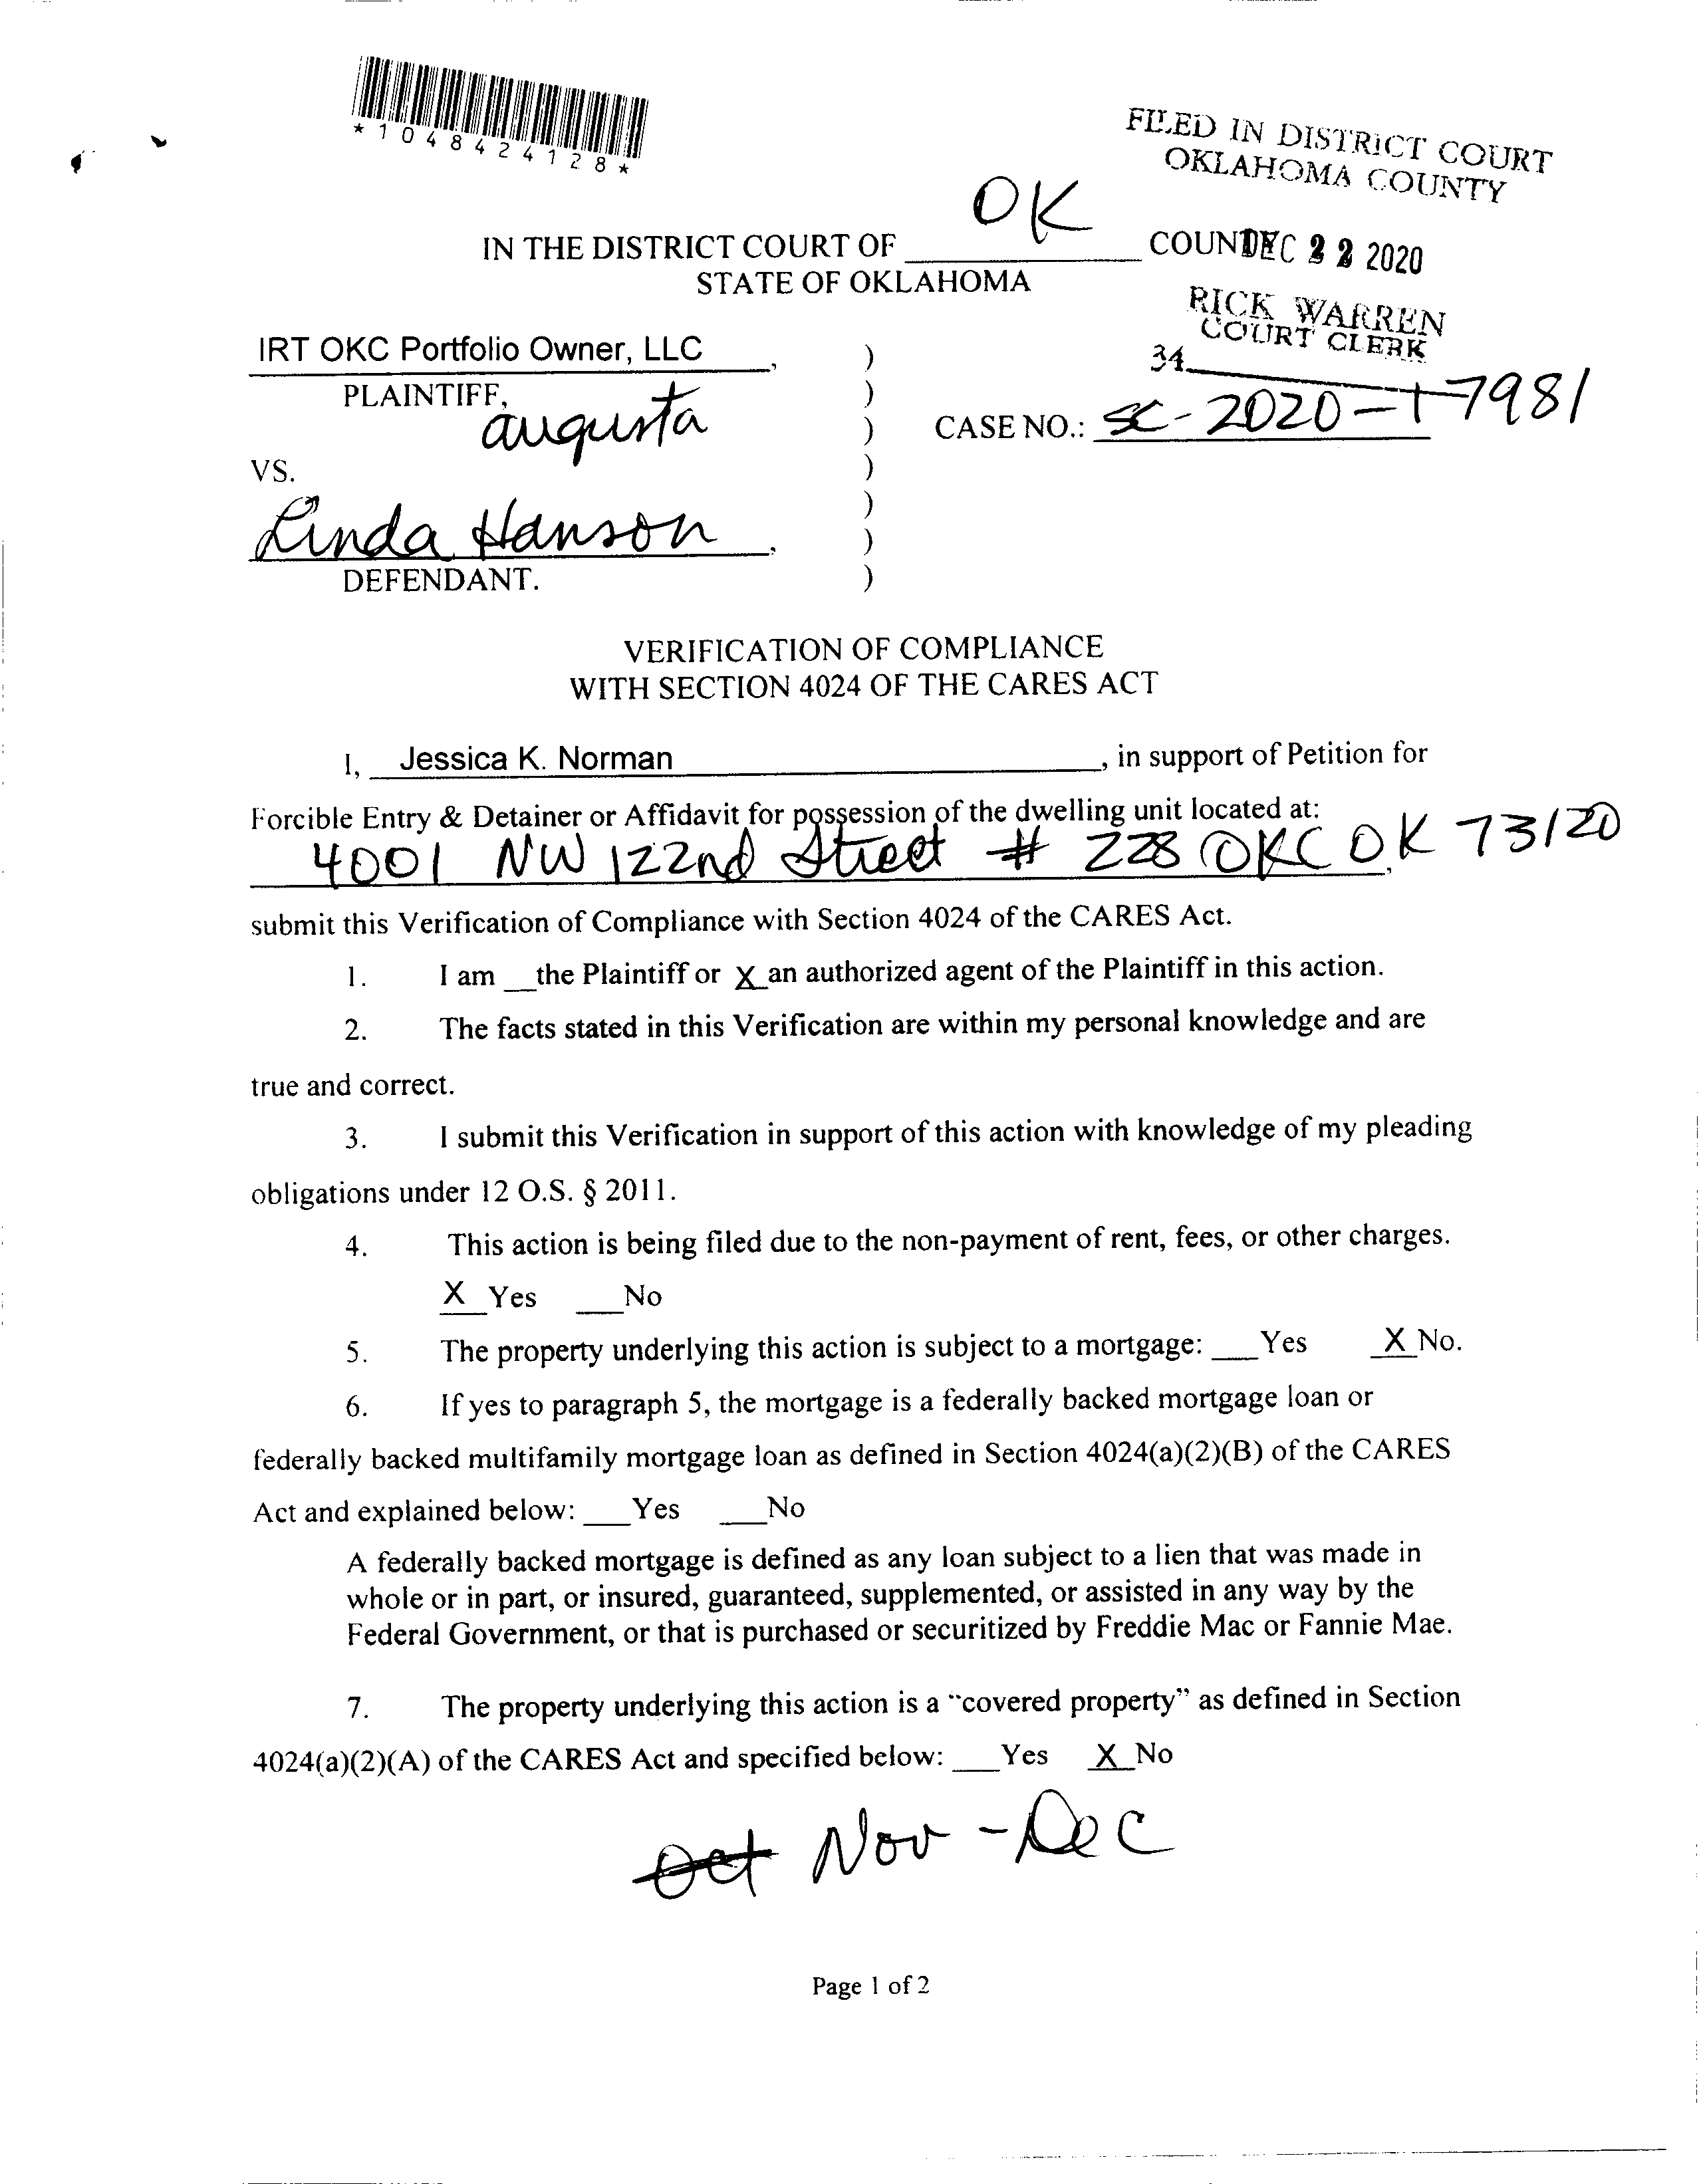 *1048424128*
FILED IN DISTRICT COURT
OKLAHOMA COUNTY
IN THE DISTRICT COURT OF OK COUN DEC 22 2020
STATE OF OKLAHOMA
RICK WARREN
COURT CLERK
34
IRT OKC Portfolio Owner, LLC, )
PLAINTIFF, )
augusta ) CASE NO.: SC-2020-17981
VS. )
)
Linda Hanson, )
DEFENDANT. )
VERIFICATION OF COMPLIANCE
WITH SECTION 4024 OF THE CARES ACT
I, Jessica K. Norman, in support of Petition for
Forcible Entry & Detainer or Affidavit for possession of the dwelling unit located at:
4001 NW 122nd Street # 228 OKC OK 73120,
submit this Verification of Compliance with Section 4024 of the CARES Act.
1. I am __the Plaintiff or X_an authorized agent of the Plaintiff in this action.
2. The facts stated in this Verification are within my personal knowledge and are
true and correct.
3. I submit this Verification in support of this action with knowledge of my pleading
obligations under 12 O.S. § 2011.
4. This action is being filed due to the non-payment of rent, fees, or other charges.
X_Yes ___No
5. The property underlying this action is subject to a mortgage: ___Yes X_No.
6. If yes to paragraph 5, the mortgage is a federally backed mortgage loan or
federally backed multifamily mortgage loan as defined in Section 4024(a)(2)(B) of the CARES
Act and explained below: ___Yes ___No
A federally backed mortgage is defined as any loan subject to a lien that was made in
whole or in part, or insured, guaranteed, supplemented, or assisted in any way by the
Federal Government, or that is purchased or securitized by Freddie Mac or Fannie Mae.
7. The property underlying this action is a "covered property" as defined in Section
4024(a)(2)(A) of the CARES Act and specified below: ___Yes X_No
Oct Nov - Dec
Page 1 of 2